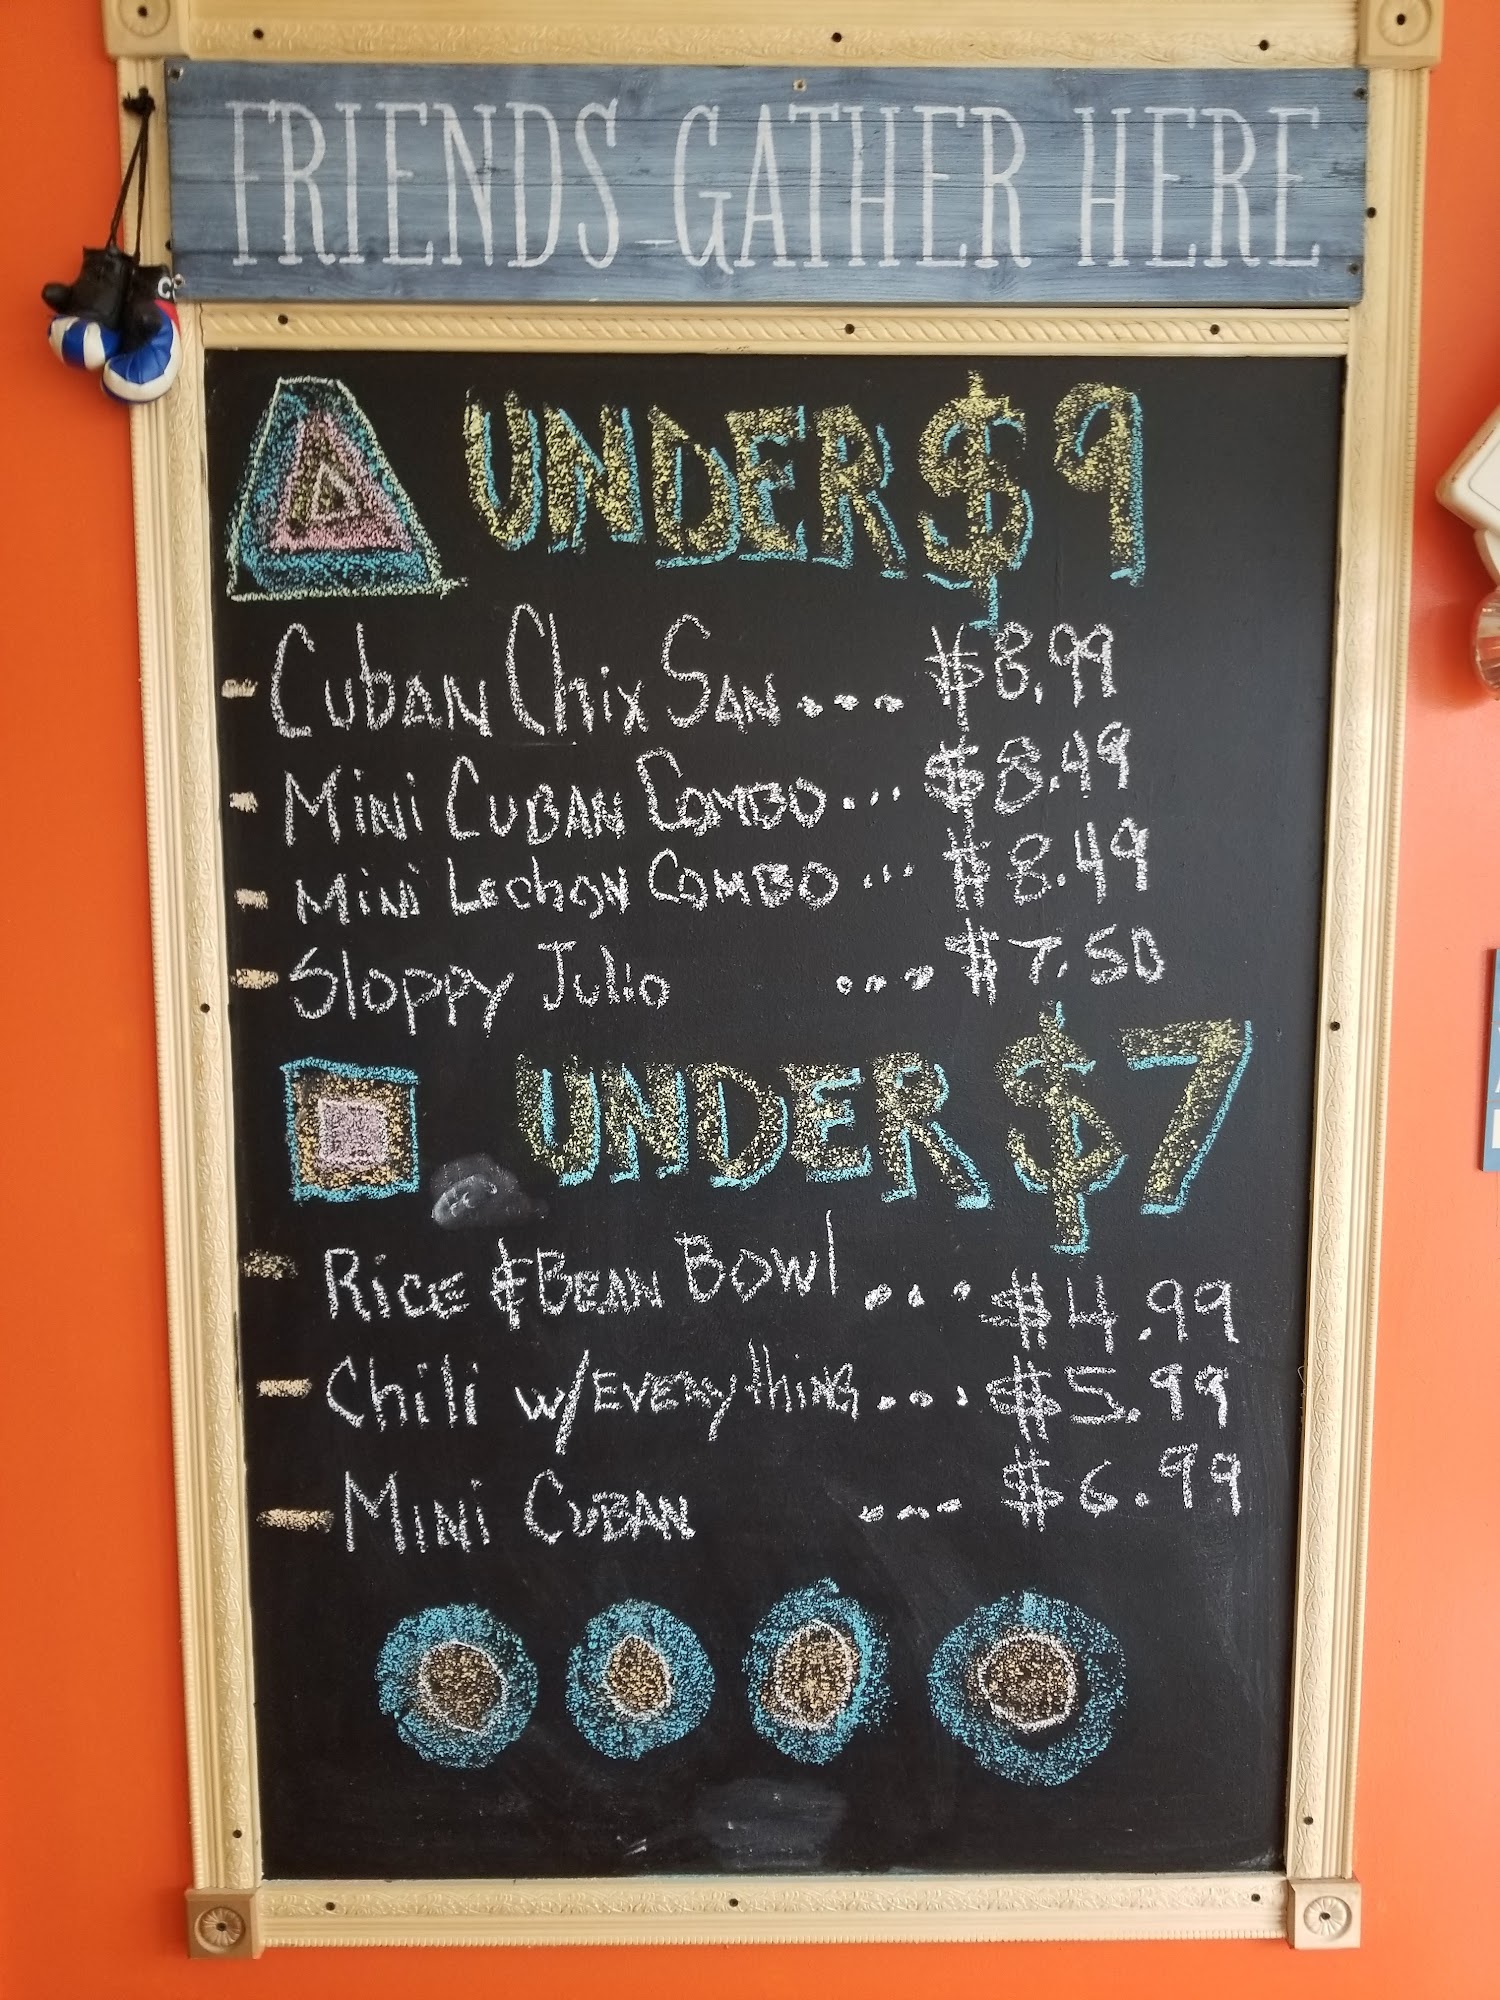 FRIENDS GATHER HERE
UNDER $9
- Cuban Chix San.... $8.99
- Mini Cuban Combo.... $8.49
- Mini Lechon Combo ... $8.49
- Sloppy Julio ... $7.50
UNDER $7
- Rice & Bean Bowl .... $4.99
- Chili w/Everything.... $5.99
- Mini Cuban ... $6.99